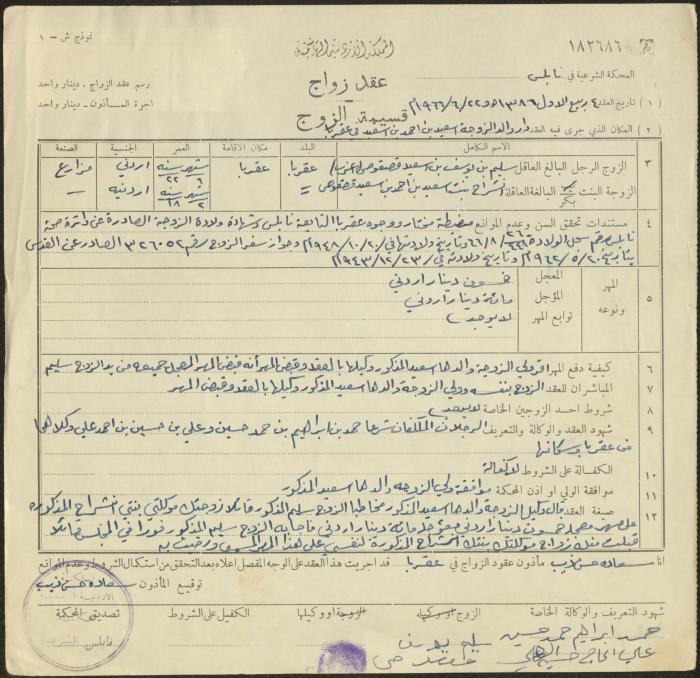 نموذج ش - ١
المملكة الأردنية الهاشمية
رقم ١٨٢٦٨٦
المحكمة الشرعية في نابلس
عقد زواج
رسم عقد الزواج - دينار واحد
(١) تاريخ العقد ٤ ربيع الاول ١٣٨٦ه و ٢٢/٦/١٩٦٦م
قسيمة الزوج
اجرة المأذون - دينار واحد
(٢) المكان الذي جرى فيه العقد دار والد الزوجة اسعيد بن احمد بن اسعيد في عقربا
الاسم الكامل البلد مكان الاقامة العمر الجنسية الصنعة
٣ الزوج الرجل البالغ العاقل سليم بن يوسف بن اسعيد عقربا عقربا شهر سنه ٦ ٢٢ اردني مزارع
الزوجة البنت بكر البالغة العاقلة انشراح بنت اسعيد بن احمد بن اسعيد شهر سنه ٢ ١٨ اردنيه
٤ مستندات تحقق السن وعدم الموانع مضبطة مختار ووجوه عقربا التابعة نابلس وشهادة ولادة الزوجة الصادرة عن دائرة صحة
نابلس رقم سجل الولادة وتاريخ ولادتها في ٢٠/١٠/١٩٤٨م وجواز سفر الزوج رقم ٣٢٦٠٥٢ الصادر عن القدس
بتاريخ ٢٠/٥/١٩٦٢م وتاريخ ولادته في ٢٣/١٢/١٩٤٣م
٥ المهر ونوعه
المعجل خمسون دينار اردني
المؤجل مائة دينار اردني
توابع المهر لا يوجد
٦ كيفية دفع المهر اقر ولي الزوجة والدها اسعيد المذكور وكيلها بالعقد وقبض المهر أنه قبض المهر المعجل جميعه من يد الزوج سليم
٧ المباشران للعقد الزوج بنفسه وولي الزوجة والدها اسعيد المذكور وكيلها بالعقد وقبض المهر
٨ شروط احد الزوجين الخاصة لا يوجد
٩ شهود العقد والوكالة والتعريف الرجلان المكلفان شرعا حمد بن ابراهيم بن حمد حسين وعلي بن حسين بن احمد علي وكلاهما
من عقربا وسكانها
١٠ الكفالة على الشروط لا كفالة
١١ موافقة الولي او اذن المحكمة موافقة ولي الزوجه والدها اسعيد المذكور
١٢ صفة العقد قال وكيل الزوجة والدها اسعيد المذكور مخاطبا الزوج سليم المذكور قائلا زوجتك موكلتي بنتي انشراح المذكوره
على مهر معجل خمسون دينار اردني ومؤجل مائة دينار اردني فاجابه الزوج سليم المذكور فورا في المجلس قائلا
قبلت منك زواج موكلتك بنتك انشراح المذكورة لنفسي على هذا المهر المسمى ورضيت به
انا سعاده حسن ذيب مأذون عقود الزواج في عقربا قد اجريت هذا العقد على الوجه المفصل اعلاه بعد التحقق من استكمال الشروط وعدم الموانع
توقيع المأذون سعاده حسن ذيب
شهود التعريف والوكالة الخاصة الزوج او وكيله الزوجة او وكيلها الكفيل على الشروط تصديق المحكمة
حمد ابراهيم حمد حسين
علي الحاج حسين العلي
سليم يوسف
نابلس الشرعية